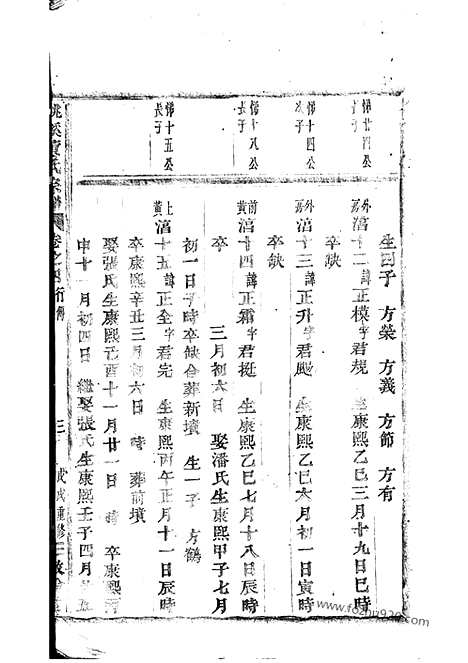 生四子 方榮 方義 方節 方有
悌廿四公次子
外房 湻十二 諱正模字君規 生康熙乙巳三月十九日巳時
卒缺
悌十四公次子
外房 湻十三 諱正升字君颺 生康熙乙巳六月初一日寅時
卒缺
悌十八公長子
前黃 湻十四 諱正霜字君挺 生康熙乙巳七月十八日辰時
卒 三月初六日 娶潘氏生康熙甲子七月
初一日子時卒缺合葬新墳 生一子 方鶴
悌十五公長子
上黃 湻十五 諱正全字君完 生康熙丙午正月十一日辰時
卒康熙辛丑三月初六日 時 葬前墳
娶張氏生康熙己酉十一月廿一日 時 卒康熙
申十一月初四日 繼娶張氏生康熙壬子四月
溪賈氏宗譜 卷之四行傳 三 戊戌重修
www.fozhu920.com